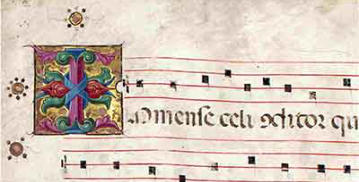 Immense celi ꝯditor qu